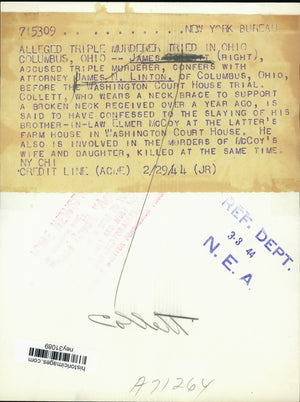 715309 . . . . . . . . . . NEW YORK BUREAU
ALLEGED TRIPLE MURDERER TRIED IN OHIO
COLUMBUS, OHIO -- JAMES (RIGHT),
ACCUSED TRIPLE MURDERER, CONFERS WITH
ATTORNEY JAMES M. LINTON, OF COLUMBUS, OHIO,
BEFORE THE WASHINGTON COURT HOUSE TRIAL.
COLLETT, WHO WEARS A NECK BRACE TO SUPPORT
A BROKEN NECK RECEIVED OVER A YEAR AGO, IS
SAID TO HAVE CONFESSED TO THE SLAYING OF HIS
BROTHER-IN-LAW, ELMER MCCOY AT THE LATTER'S
FARM HOUSE IN WASHINGTON COURT HOUSE. HE
ALSO IS INVOLVED IN THE MURDERS OF MCCOY'S
WIFE AND DAUGHTER, KILLED AT THE SAME TIME.
NY CHI
CREDIT LINE (ACME) 2/29/44 (JR)
REF. DEPT.
3-3 44
N. E. A.
Collett
historicimages.com
ney31089
A71264